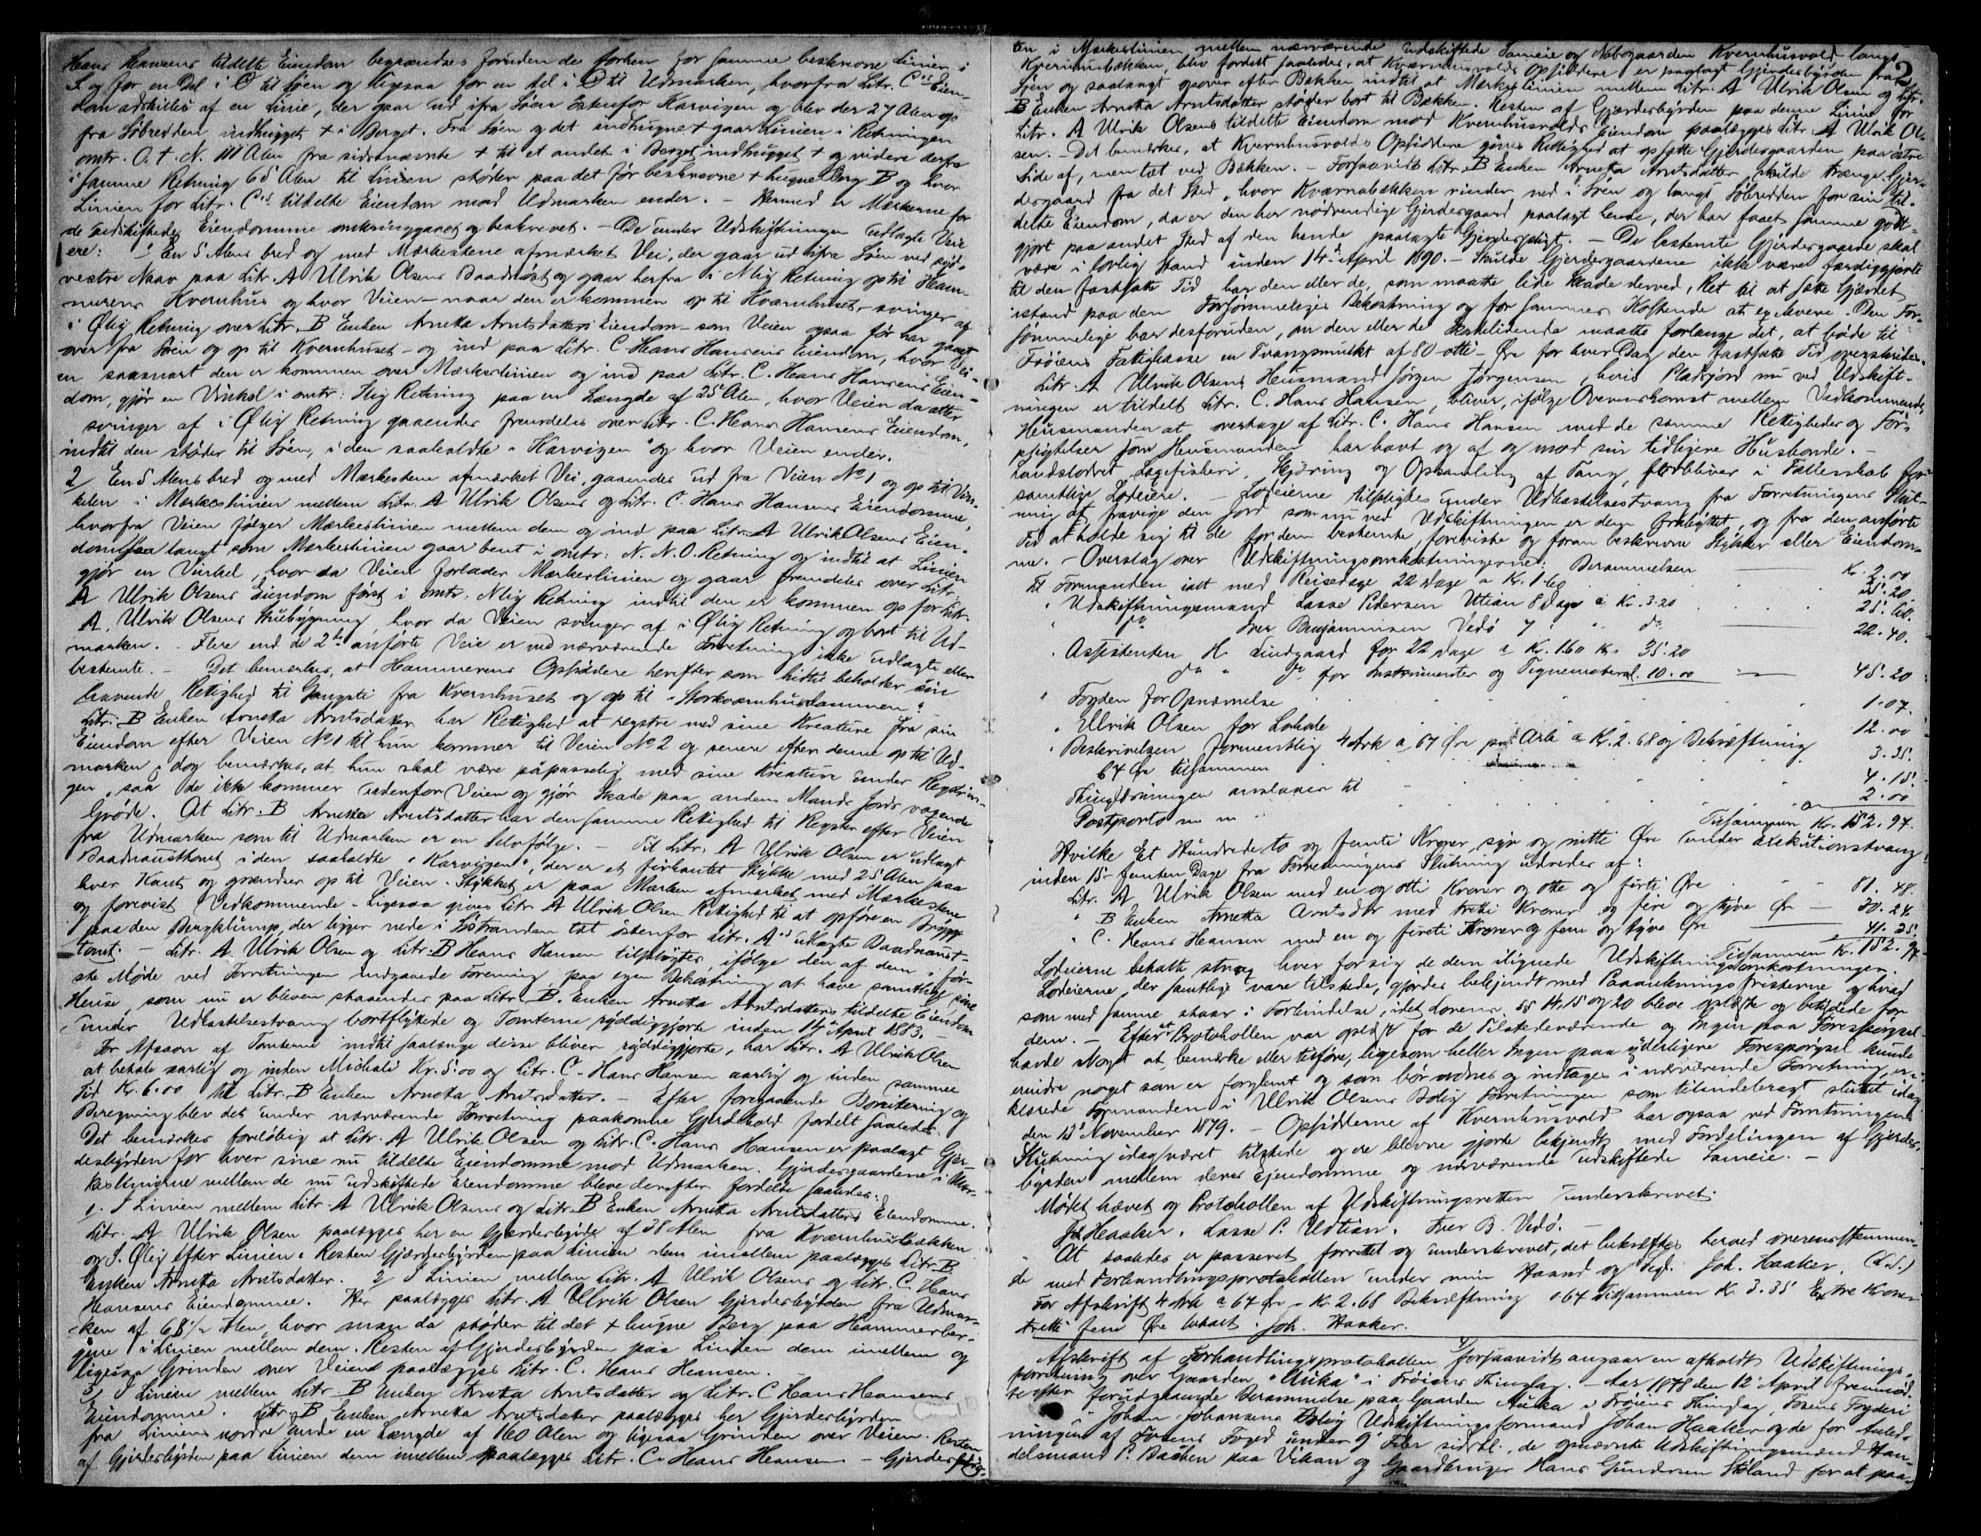 Hans Hansens tildelte Eiendom begrændses foruden de forhen for samme beskrevne Linier i
S og for en Del i Ø til Søen og ligesaa for en del i Ø til Udmarken, hvorfra Litr. C's Eien-
dom adskilles af en Linie, der gaar ud ifra Søen Østenfor Karvigen og blev der 27 Alen op
fra Søbredden indhugget + i Berget. Fra Søen og det indhugne + gaar Linien i Retningen
omtr. O. t. N. 111 Alen fra sidstnævnte + til et andet i Berget indhugget + og videre derfra
i samme Retning 65 Alen til Linien støder paa det før beskrevne + hugne Berg B og hvor
Linien for Litr. C's tildelte Eiendom mod Udmarken ender. - Hermed er Mærkerne for
de udskiftede Eiendomme omkringgaaet og beskrevet. - De under Udskiftningen udlagte Veie
ere: 1 En 5 Alens bred og med Mærkestene afmærket Vei, der gaar ud ifra Søen ved syd-
vestre Naav paa Litr. A Ulrik Olsens Baadstøst og gaar herfra i Nlig Retning op til Ham-
merens Kvernhus og hvor Veien - naar den er kommen op til Kvernhuset - svinger af
i Ølig Retning over Litr. B Enken Arnetta Arntsdatters Eiendom - som Veien ogsaa før har gaaet
over fra Søen og op til Kvernhuset - og ind paa Litr. C. Hans Hansens Eiendom, hvor Vei-
en saasnart den er kommen over Mærkeslinien og ind paa Litr. C. Hans Hansens Eien-
dom, gjør en Vinkel i omtr: Nlig Retning paa en Længde af 25 Alen, hvor Veien da atter
svinger af i Ølig Retning gaaendes fremdeles over Litr. C. Hans Hansens Eiendom,
indtil den støder til Søen, i den saakaldte "Karvigen" og hvor Veien ender.
2 En 5 Alens bred og med Mærkestene afmærket Vei, gaaendes ud fra Veien No 1 og op til Vin-
kelen i Mærkeslinien mellem Litr. A Ulrik Olsens og Litr. C Hans Hansens Eiendomme,
hvorfra Veien følger Mærkeslinien mellem dem og ind paa Litr. A Ulrik Olsens Eien-
dom saa langt som Mærkeslinien gaar bent i omtr: N. N. O. Retning og indtil at Linien
gjør en Vinkel, hvor da Veien forlader Mærkeslinien og gaar fremdeles over Litr.
A Ulrik Olsens Eiendom først i omtr: Nlig Retning indtil den er kommen op for Litr.
A. Ulrik Olsens Stuebygning hvor da Veien svinger af i Ølig Retning og bort til Ud-
marken. - Flere end de 2de anførte Veie er ved nærværende Forretning ikke udlagte eller
bestemte. - Det bemærkes, at Hammerens Opsiddere herefter som hidtil beholder sin
havende Rettighed til Gangsti fra Kvernhuset og op til "Storkværnhusdammen".
Litr. B Enken Arnetta Arntsdatter har Rettighed at regstre med sine Kreature fra sin
Eiendom efter Veien No 1 til hun kommer til Veien No 2 og senere efter denne op til Ud-
marken, dog bemærkes, at hun skal være påpasselig med sine Kreature under Regstrin-
gen, saa de ikke kommer udenfor Veien og gjør Skade paa anden Mands Jords voxende
Grøde. At Litr. B Arnetta Arntsdatter har den samme Rettighed til Regster efter Veien
fra Udmarken som til Udmarken er en Selvfølge. - Til Litr. A Ulrik Olsen er udlagt
Baadnausttomt i den saakaldte "Karvigen", der er et firkantet Stykke med 25 Alen paa
hver Kant og grændser op til Veien. Stykket er paa Marken afmerket med Mærkestene
og forevist Vedkommende. Ligesaa gives Litr. A Ulrik Olsen Rettighed til at opføre en Brygge
paa den Bergklump, der ligger nede i Søstranden tæt østenfor Litr. A's udlagte Baadnaust-
tomt. - Litr. A. Ulrik Olsen og Litr. B Hans Hansen tilpligtes ifølge den af dem i før-
ste Møde ved Forretningen indgaaede Forening paa egen Bekostning at have samtlige sine
Huse, som nu er bleven staaendes paa Litr. B. Enken Arnetta Arntsdatters tildelte Eiendom
under Udkastelsestvang bortflyttede og Tomterne ryddiggjorte inden 14 April 1883. -
For Afsavn af Tomterne indtil saalænge disse bliver ryddiggjorte, har Litr. A Ulrik Olsen
at betale aarlig og inden Michaeli Kr. 5.00 og Litr. C. Hans Hansen aarlig og inden samme
Tid Kr. 6.00 til Litr. B Enken Arnetta Arntsdatter. - Efter foregaaende Bonitering og
Beregning blev det under nærværende Forretning paakomne Gjerdehold fordelt saaledes.
Det bemærkes foreløbig at Litr. A Ulrik Olsen og Litr. C. Hans Hansen er paalagt Gjer-
desbyrden for hver sine nu tildelte Eiendomme mod Udmarken. Gjerdesgaardene i Mær-
keslinierne mellem de nu udskiftede Eiendomme bleve derefter fordelte saaledes:
1. I Linien mellem Litr. A Ulrik Olsens og Litr. B Enken Arnetta Arntsdatters Eiendomme.
Litr. A Ulrik Olsen paalægges her en Gjerdesbyrde af 38 Alen fra Kværnhusbækken
og S. Ølig efter Linien. Resten Gjerdesbyrden paa Linien dem imellem paalægges Litr. B
Enken Arnetta Arntsdatter. 2/ I Linien mellem Litr. A Ulrik Olsens og Litr. C. Hans
Hansens Eiendomme. Her paalægges Litr. A Ulrik Olsen Gjerdesbyrden fra Udmar-
ken af 68 1/2 Alen, hvor man da støder til det + hugne Berg paa Hammerber-
gene i Linien mellem dem. Resten af Gjerdesbyrden paa Linien dem imellem og
ligesaa Grinden over Veien paalægges Litr. C. Hans Hansen.
3/ I Linien mellem Litr. B Enken Arnetta Arntsdatter og Litr. C Hans Hansens
Eiendomme. Litr. B Enken Arnetta Arntsdatter paalægges her Gjerdesbyrden
fra Liniens nordre Ende en Længde af 160 Alen og ligesaa Grinden over Veien. Resten
af Gjerdesbyrden paa Linien dem imellem paalægges Litr. C. Hans Hansen - Gjerdesplig-
2
ten i Mærkeslinien mellem nærværende udskiftede Sameie og Nabogaarden Kvernhusvold langs
Kvernhusbækken, blev fordelt saaledes, at Kværnhusvolds Opsiddere er paalagt Gjerdesbyrden fra
Søen og saalangt opover efter Bækken indtil at Mærkeslinien mellem Litr. A Ulrik Olsen og Litr.
B Enken Arnetta Arntsdatter støder bort til Bækken. Resten af Gjærdesbyrden paa denne Linie for
Litr. A Ulrik Olsens tildelte Eiendom mod Kvernhusvolds Eiendom paalægges Litr. A Ulrik Ol-
sen. - Det bemærkes, at Kvernhusvolds Opsiddere gives Rettighed at opsætte Gjerdesgaarden paa østre
Side af, men tæt ved Bækken. - Forsaavidt Litr. B Enken Arnetta Arntsdatter skulde trænge Gjer-
desgaard fra det Sted, hvor Kværnabækken rinder ned i Søen og langs Søbredden for sin til-
delte Eiendom, da er den her nødvendige Gjerdesgaard paalagt hende, der har faaet samme godt-
gjort paa andet Sted af den hende paalagte Gjerdespligt. - De bestemte Gjerdesgaarde skal
være i lovlig Stand inden 14de April 1890. - Skulde Gjerdesgaardene ikke være færdiggjorte
til den fastsatte Tid har den eller de, som maatte lide Skade derved, Ret til at sætte Gjærdet
istand paa den Forsømmeliges Bekostning og for sammes Høstende at exqvere. Den For-
sømmelige bør desforuden, om den eller de Skadelidende maatte forlange det, at bøde til
Frøiens Fattigkasse en Tvangsmulkt af 80 - otti - Øre for hver Dag den fastsatte Tid overskrides.
Litr. A Ulrik Olsens Husmand Jørgen Jørgensen, hvis Pladsjord nu ved Udskift-
ningen er tildelt Litr. C. Hans Hansen, bliver, ifølge Overenskomst mellem Vedkommende,
Husmanden at overtage af Litr. C. Hans Hansen med de samme Rettigheder og For-
pligtelser som Husmanden har havt og af og mod sin tidligere Husbonde. -
Landslodret Lagefiskeri, Skydning og Opsamling af Tang, forbliver i Fællesskab for
samtlige Lodeiere. - Lodeierne tilpligtes under Udkastelsestvang fra Forretningens Slut-
ning at fravige den Jord som nu ved Udskiftningen er dem fraskiftet, og fra den anførte
Tid at holde sig til de for dem bestemte, foreviste og foran beskrevne Stykker eller Eiendom-
me. - Overslag over Udskiftningsomkostningerne: Berammelsen — Kr. 2.00
Til Formanden ialt med Reisedage 22 Dage a Kr. 1.60 . . . 35.20
" Udskiftningsmand Lasse Pedersen Utian 8 Dage a Kr. 3.20 . . . 25.60
" do Iver Benjaminsen Vedø 7 " " do — 22.40.
" Assistenten H. Lindgaard for 22 Dage a Kr. 1.60 Kr. 35.20
do " do for Instrumenter og Tegnemateriel. 10.00 — 45.20
" Fogden for Opnævnelse . . . 1.07.
" Ulrik Olsen for Lokale . . . 12.00
" Beskrivelsen formentlig 4 Ark a 67 Øre pr Ark a Kr. 2.68 og Bekræftning
67 Øre tilsammen . . . 3.35.
Thinglæsningen anslaaes til . . . 4.15.
Postporto m m . . . 2.00
Tilsammen Kr. 152.97.
Hvilke Et Hundrede to og femti Kroner, syv og nitti Øre under Exekutionstvang
inden 15 - femten Dage fra Forretningens Slutning udredes af:
Litr. A Ulrik Olsen med en og otti Kroner og otte og firti Øre . . . 81.48.
" B Enken Arnetta Arntsdtr med tretti Kroner og fire og tyve Øre — 30.24.
" C. Hans Hansen med en og firti Kroner og fem og tyve Øre — 41.25.
Tilsammen Kr. 152.97.
Lodeierne betalte strag hver for sig de dem ilignede Udskiftningsomkostninger.
Lodeierne, der samtlige vare tilstede, gjordes bekjendt med Paaankningsfristerne og hvad
som med samme staar i Forbindelse, idet Lovens §§ 14, 15 og 20 bleve oplæste og betydede for
dem. - Efter at Protokollen var oplæst for de Tilstedeværende og Ingen paa Forespørgsel
havde Noget at bemærke eller tilføre, ligesom heller Ingen paa yderligere Forespørgsel kunde
erindre noget som er forglemt og som bør ordnes og indtages i nærværende Forretning, er-
klærede Formanden i Ulrik Olsens Bolig Forretningen som tilendebragt sluttet idag
den 13de November 1879. - Opsidderne af Kvernhusvold har ogsaa ved Forretningens
Slutning idag været tilstede og ere blevne gjorte bekjendt med Fordelingen af Gjerdes-
byrden mellem deres Eiendomme og nærværende udskiftede Sameie. -
Mødet hævet og Protokollen af Udskiftningsretten underskrevet.
Joh Haaker. Lasse P. Udtian. Iver B. Vedø. -
At saaledes er passeret, forrettet og underskrevet, det bekræftes herved overensstemmen-
de med Forhandlingsprotokollen under min Haand og Segl. Joh. Haaker. (L.S.)
For Afskrift 4 Ark a 67 Øre - Kr. 2.68 Bekræftning 67 Tilsammen Kr. 3.35 Er tre Kroner
tretti fem Øre betalt. Joh. Haaker.
Afskrift af Forhandlingsprotokollen forsaavidt angaar en afholdt Udskiftnings-
forretning over Gaarden "Auka" i Frøiens Thinglag. - Aar 1878 den 12 April fremmød-
te efter forudgaaende Berammelse paa Gaarden Auka i Frøiens Thinglag, Fosens Fogderi
i Johan Johansens Bolig Udskiftningsformand Johan Haaker og de for Anled-
ningen af Fosens Foged under 9 Febr sidstl. de opnævnte Udskiftningsmænd Han-
delsmand P. Bachen paa Vikan og Gaardbruger Hans Gundersen Støland for at paa-